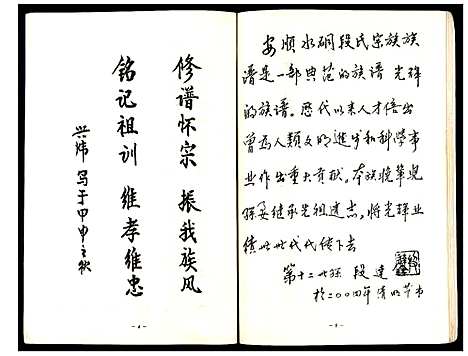 安顺水硐段氏宗族族
谱是一部典范的族谱 光辉
的族谱。历代以来人才倍出
曾为人类文明进步和科学事
业作出重大贡献。本族晚辈
孙要继承先祖遗志,将光辉业
绩世世代代传下去
第十二世孙 段建
於二00四年清明节书
修谱怀宗 振我族风
铭记祖训 维孝维忠
兴炜 写于甲申之秋